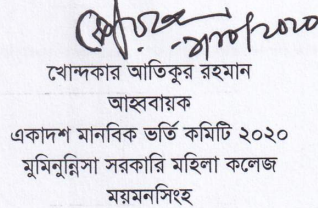 খোন্দকার আতিকুর রহমান
আহবায়ক
একাদশ মানবিক ভর্তি কমিটি ২০২০
মুমিনুন্নিসা সরকারি মহিলা কলেজ
ময়মনসিংহ